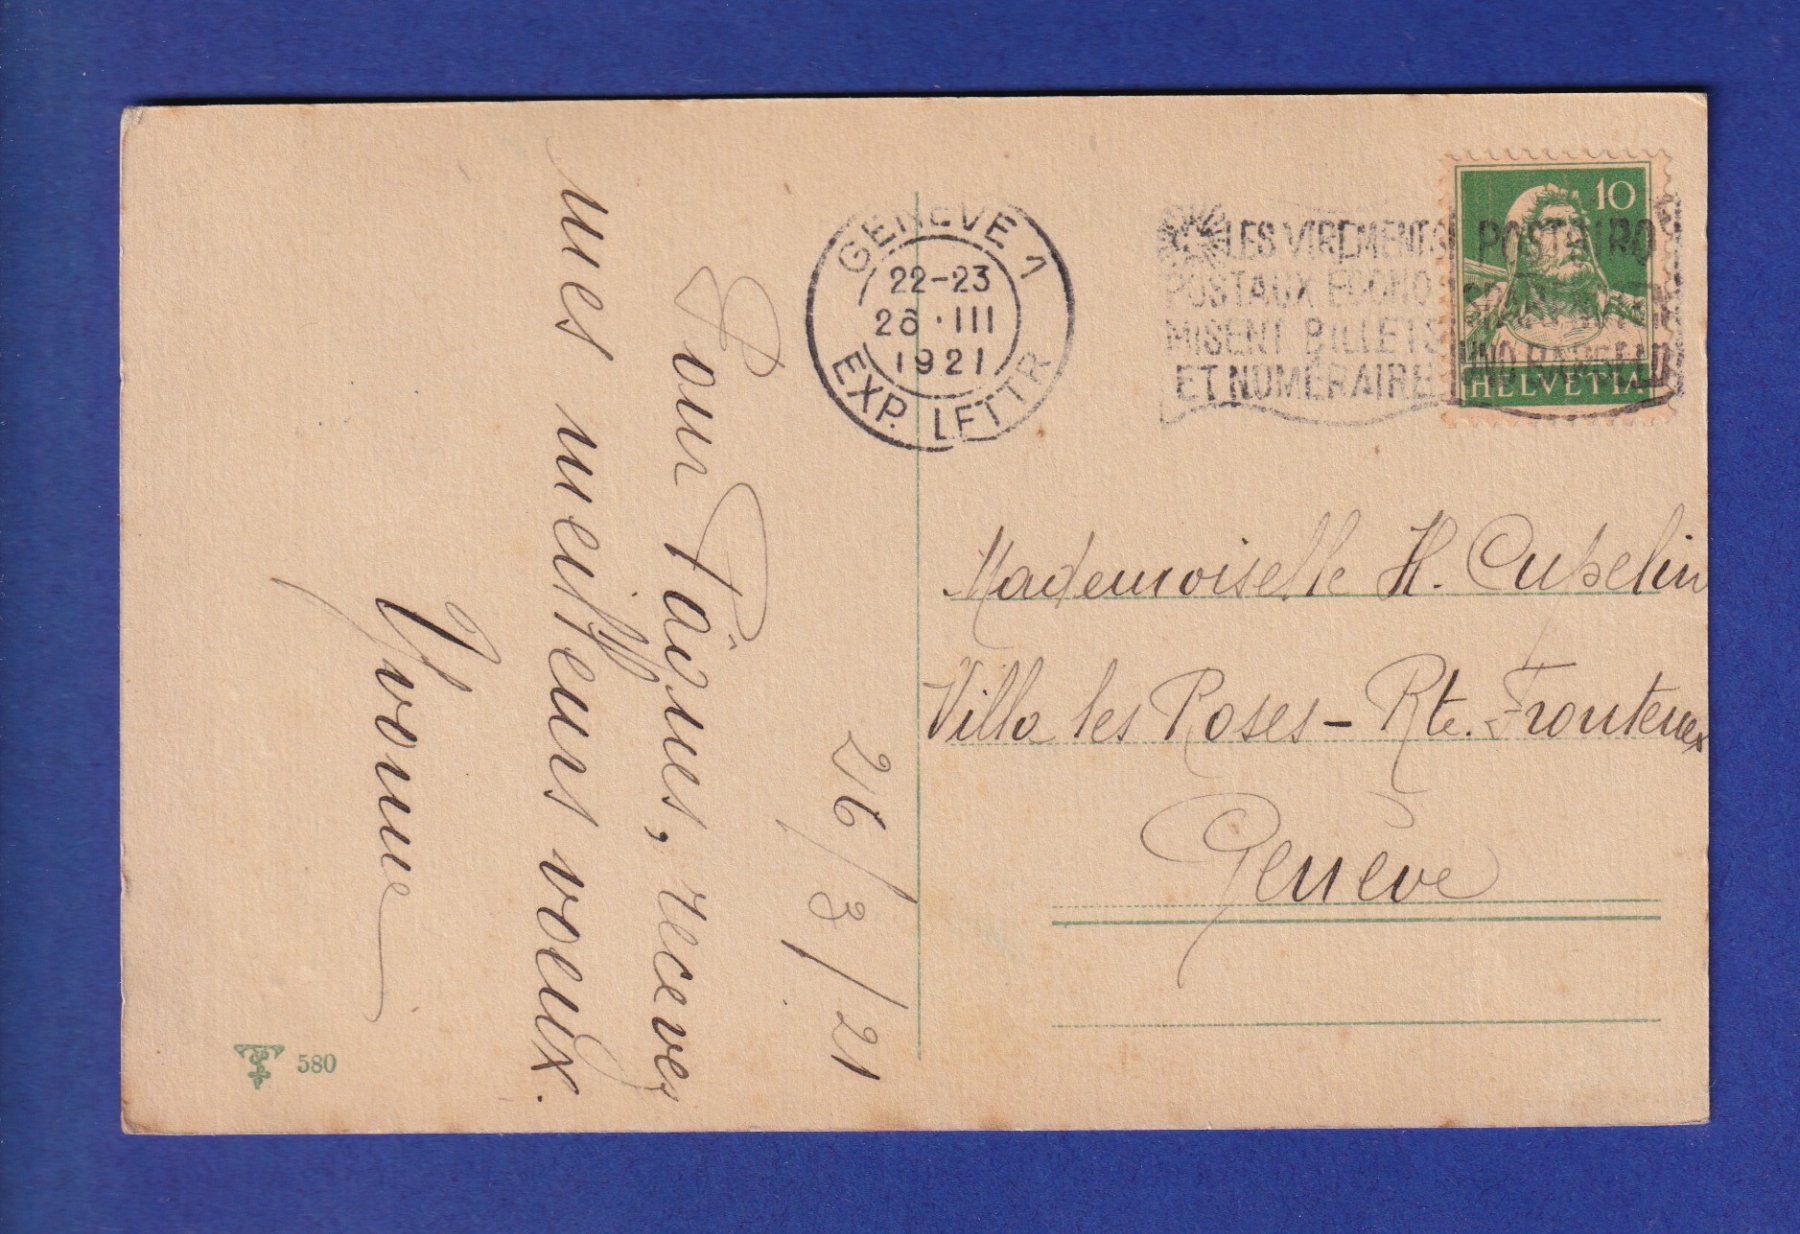 26/3/21
Pour Pâques, receves
mes meilleurs voeux.
Yvonne
580
GENÈVE 1
22-23
26·III
1921
EXP. LETTR
LES VIREMENTS
POSTAUX ECONO
MISENT BILLETS
ET NUMÉRAIRE
POSTGIRO
10
HELVETIA
Mademoiselle H. Cupelin
Villa les Roses – Rte. Frontenex
Genève